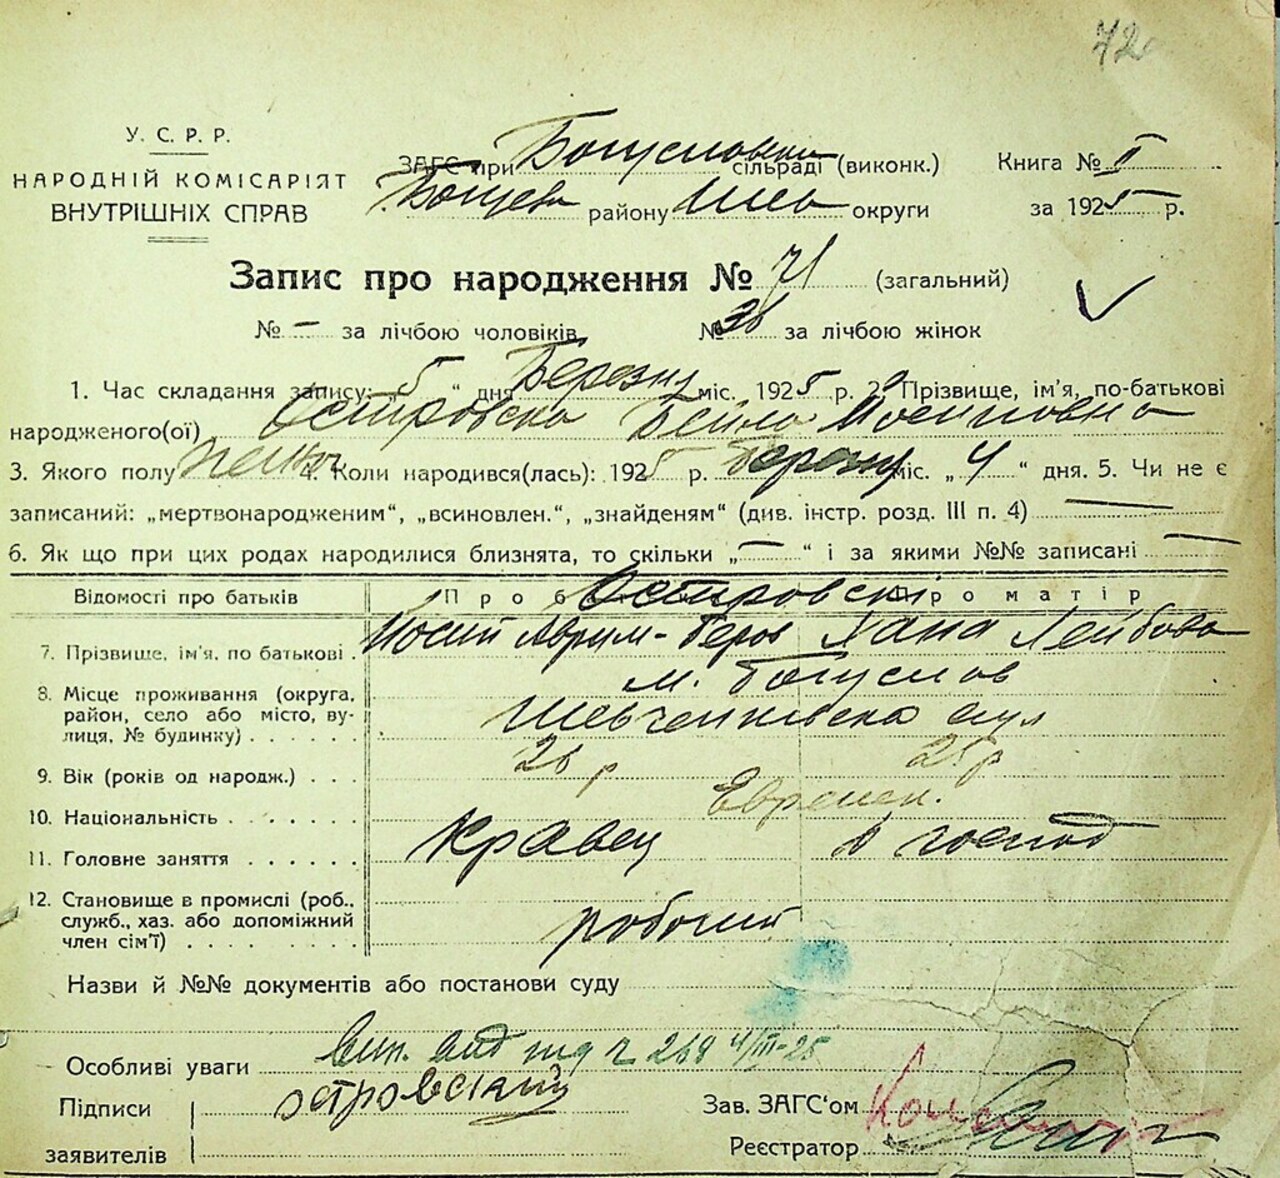 72
У. С. Р. Р.
НАРОДНІЙ КОМІСАРІЯТ
ВНУТРІШНІХ СПРАВ
ЗАГС при Богуславськ сільраді (виконк.) Книга № I
району Шев округи за 1925 р.
Запис про народження № 71 (загальний)
№ — за лічбою чоловіків № 36 за лічбою жінок
1. Час складання запису: „5" дня Березня міс. 1925 р. 2. Прізвище, ім'я, по-батькові
народженого(ої) Островска Бейла Мосиповна
3. Якого полу 4. Коли народився(лась): 1925 р. березня міс. „4" дня. 5. Чи не є
записаний: „мертвонародженим", „всиновлен.", „знайденям" (див. інстр. розд. III п. 4) —
6. Як що при цих родах народилися близнята, то скільки „—" і за якими №№ записані —
Відомості про батьків Про батька Про матір
Островскі
7. Прізвище, ім'я, по батькові . Йосип Аврум-Беров Хана Лейбова
8. Місце проживання (округа, м. Богуслав
район, село або місто, ву- Шевченківска вул
лиця, № будинку) . . . . . .
9. Вік (років од народж.) . . . 26 р 25 р
10. Національність . . . . . . . Евреиск.
11. Головне заняття . . . . . . Кравец господ
12. Становище в промислі (роб.,
служб., хаз. або допоміжний робочий
член сім'ї) . . . . . . . . .
Назви й №№ документів або постанови суду
Особливі уваги Вип. 4/III-25
Підписи островский Зав. ЗАГС'ом
заявителів Реєстратор